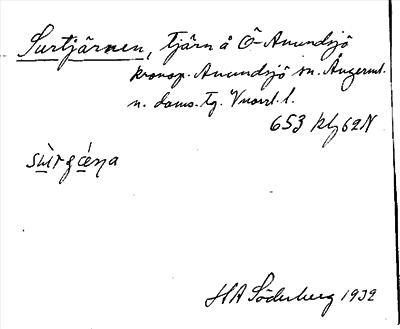 Surtjärnen, tjärn å Ö-Anundsjö
kronop. Anundsjö sn. Ångerml.
n. doms. tg. Vnorrl. l.
653 kbl 62N
HA Söderberg 1932